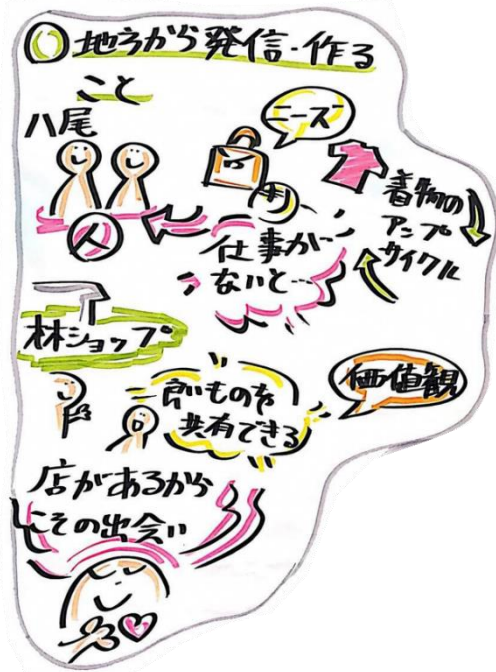 地方から発信・作る
こと
八尾
ニーズ
着物の
アップ
サイクル
人
仕事が
ないと…
林ショップ
良いものを
共有できる
価値観
店があるから
その出会い